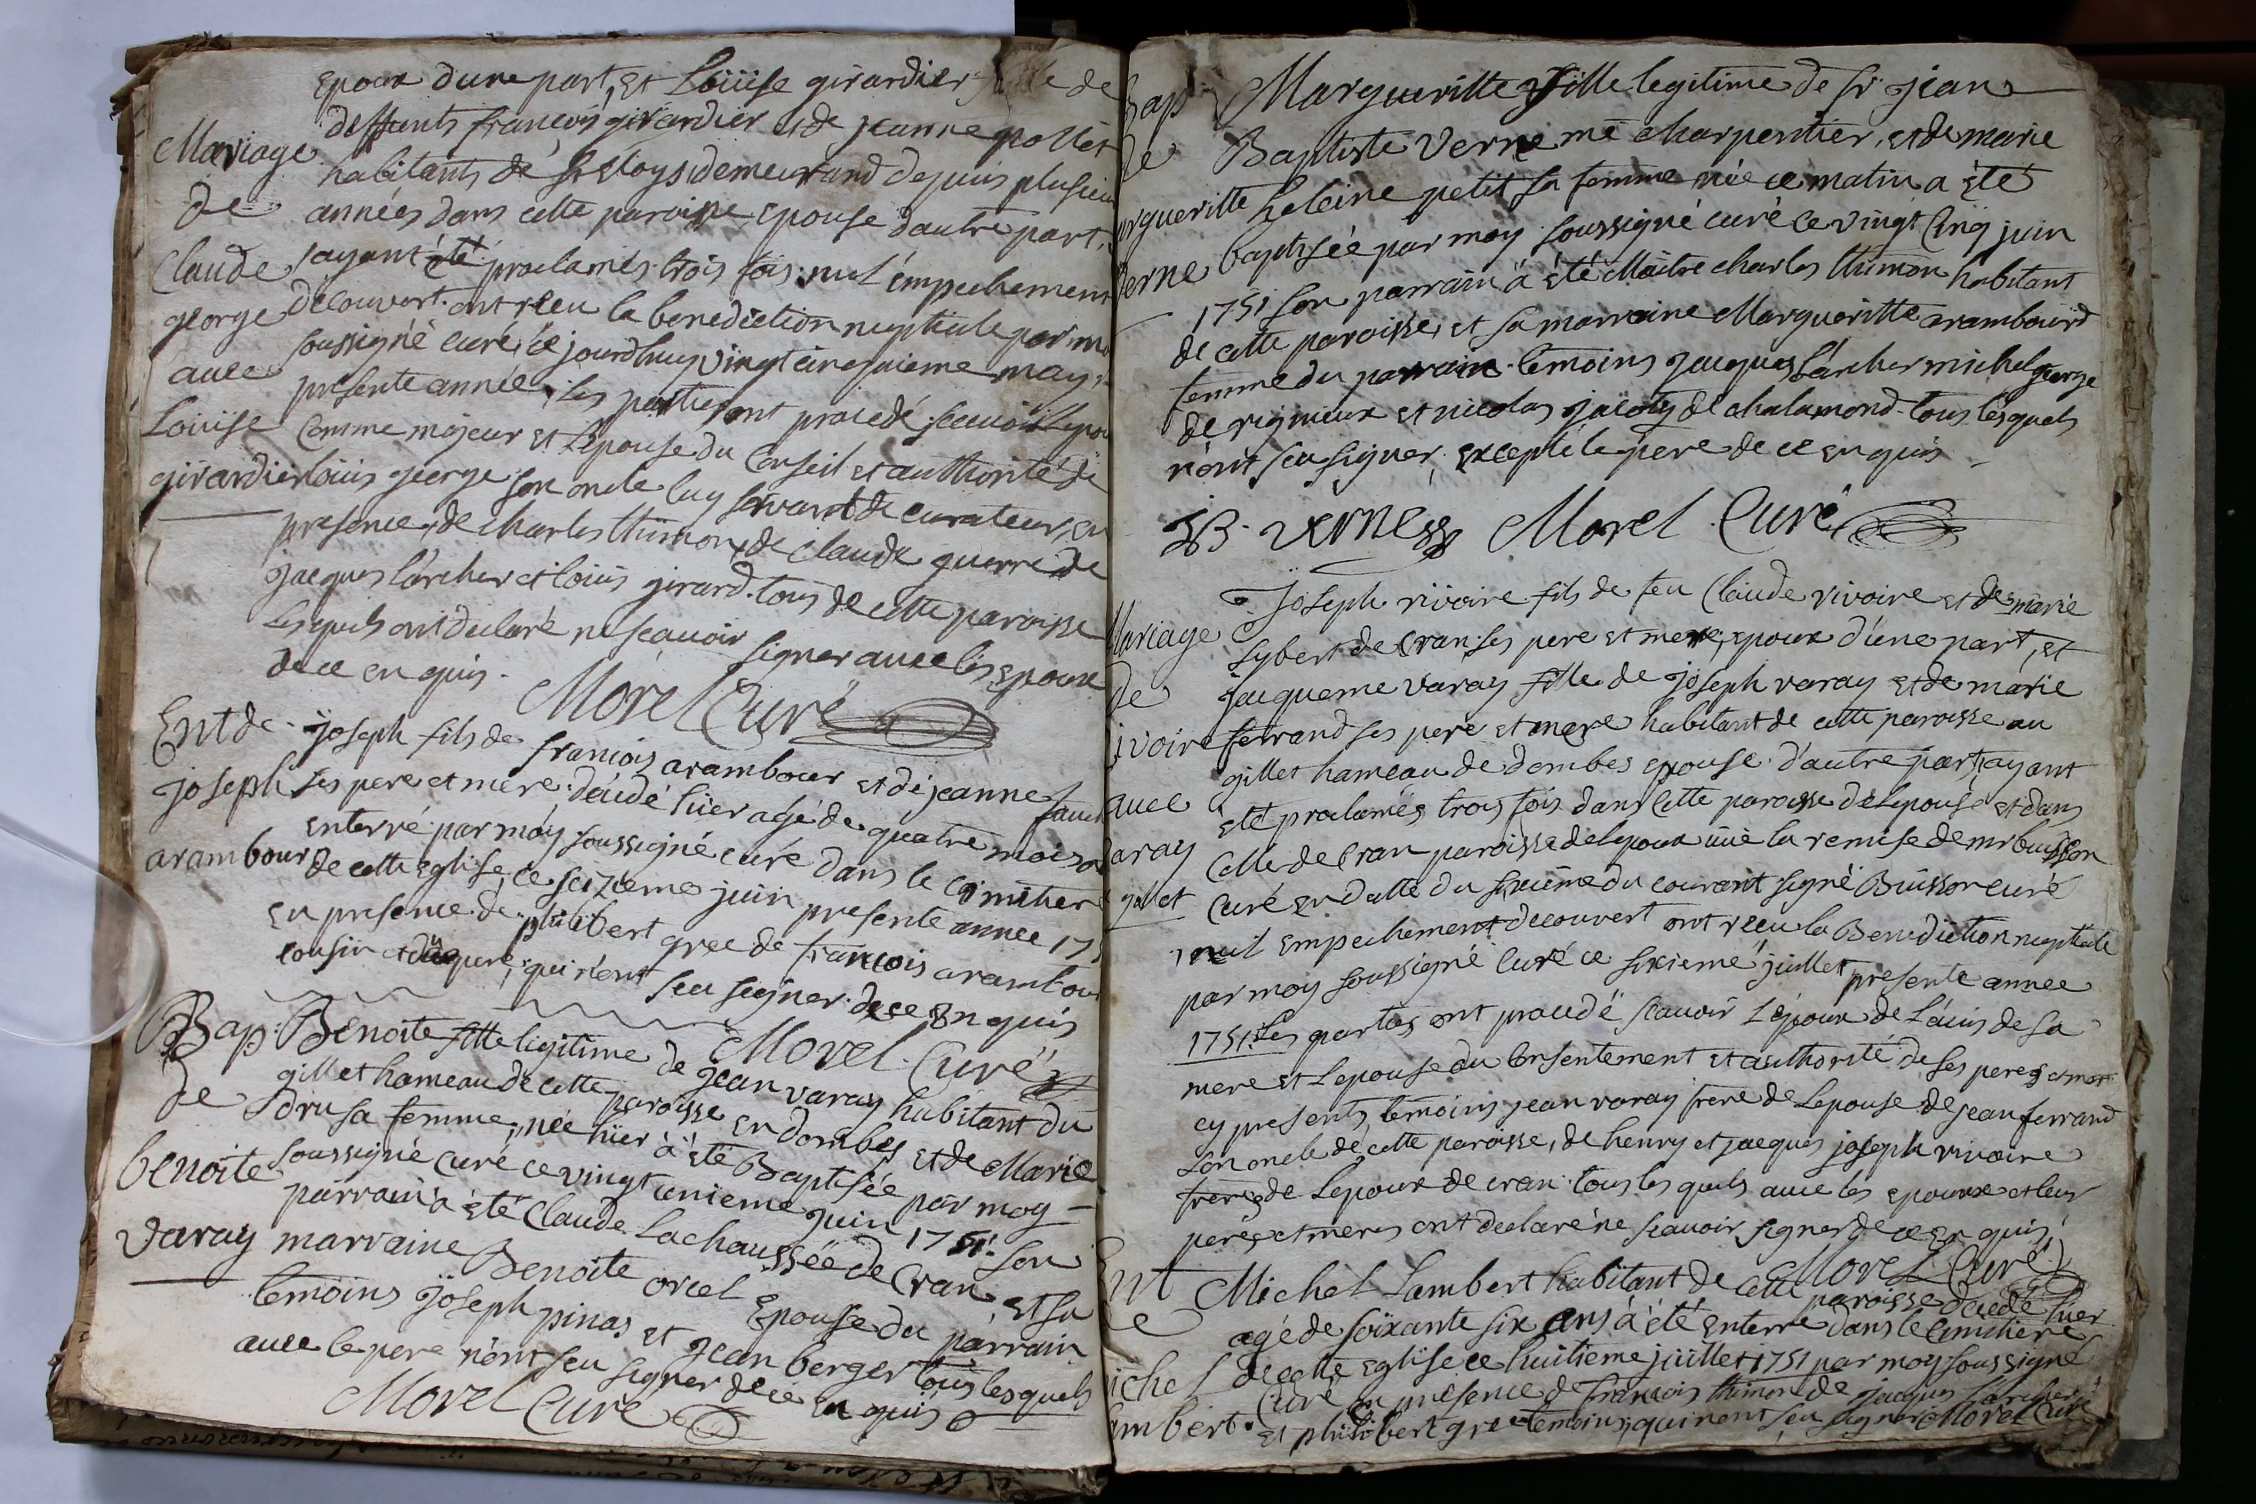 Epoux dune part, Et Loüise girardier fille de
deffunts francois girardier et de jeanne pollet
Mariage
habitants de St Eloys demeurand depuis plusieu
de
années dans cette paroisse Epouse dautre part.
Claude
ayant été proclamés trois fois nul émpechement
george
découvert ont reçu la benediction nuptiale par mo
avec
soussigné curé ce jourdhuy vingt cinquieme may
Loüise
presente année. Les parties ont procedé scavoir lepou
girardier
Comme majeur et Lepouse du Conseil et authorité de
loüis george son oncle luy servant de curateur, en
presence de charles thimon, de claude guerre de
jacques lárcher et loüis girard. tous de cette paroisse
Lesquels ont declaré ne scavoir signer avec les Epoux
de ce enquis.
Morel Curé
Ent de
joseph fils de francois arambour et de jeanne
joseph
ses pere et mere. décédé hüer agé de quatre mois a
arambour
enterré par moy soussigné curé dans le cimitiere
de cette eglise, ce seizieme juin presente annee 175
en presence de philibert gree de francois arambour
cousin et du pere, qui n'ont sçu signer de ce Enquis
Morel. Curé
Bap:
Benoite fille legitime de jean varay habitant du
de
gillet hameau de cette paroisse en dombes et de Marie
dru sa femme, née hüer à été Baptisée par moy
benoite
soussigné curé ce vingt unieme juin 1751. son
varay
parrain à été Claude Lachaussée de Cran et sa
marraine Benoite orcel Epouse du parrain
temoins joseph pinas et jean berger tous lesquels
avec le pere n'ont sçu signer de ce enquis
Morel Curé
Bap
Margueritte fille legitime de sr jean
de
Baptiste Verne me charpentier, et de marie
rgueritte
heleine petit sa femme née ce matin a été
verne
baptisée par moy soussigné curé ce vingt Cinq juin
1751 son parrain à été Maitre charles thimon habitant
de cette paroisse, et sa marraine Margueritte arambourd
femme du parrain. temoins jacques lárcher michel george
de rignieux et nicolas jacoty de chalamond. tous lesquels
n'ont sçu signer. excepté le pere de ce enquis
JB. verne Morel Curé
joseph vivoire fils de feu Claude vivoire et de marie
Mariage
Sybert de Cran. ses pere et mere, epoux d'une part, et
de
jacqueme varay fille de joseph varay et de marie
ivoire
ferrand ses pere et mere habitant de cette paroisse au
gillet hameau de dombes epouse d'autre part, ayant
avec
été proclamés trois fois dans Cette paroisse de Lepouse et dans
aray
Celle de Cran paroisse de lepoux vüe la remise de mr buisson
gillet
Curé en datte du sixieme du courant signé Buisson curé
nul empechement decouvert ont reçu la Benediction nuptiale
par moy soussigné Curé ce sixieme juillet presente annee
1751. Les parties ont procedé scavoir Lépoux de L'avis de sa
mere et Lepouse du Consentement et authorité de ses peres et mere
cy presents, temoins jean varay frere de Lepouse de jean ferrand
son oncle de cette paroisse, de henry et jacques joseph vivoire
freres de Lepoux de cran. tous lesquels avec les epoux et leur
peres et meres ont declaré ne scavoir signer de ce Enquis,
Morel Curé
Ent
Michel Lambert habitant de cette paroisse décédé hüer
e
agé de soixante six ans à été enterré dans le Cimitiere
ichel
de cette eglise ce huitieme juillet 1751 par moy soussigné
Curé en presence de francois thimon de jacques lárcher
ambert.
et philibert gree temoins, qui n'ont sçu signer Morel Curé